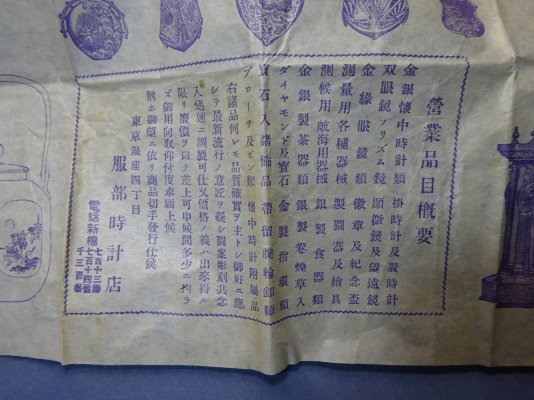 營業品目概要
金銀懷中時計類 掛時計及置時計
双眼鏡プリズム鏡 顯微鏡及望遠鏡
金緣眼鏡類 徽章及紀念盃
測量用各種器械 製圖器及繪具
測候用航海用器械 銀製食器類
金銀製茶器類 銀製卷煙草入
ダイヤモンド及寶石 金製指環類
寶石入諸飾品 帶留腕輪卸類
ブローチ及ピン類 懷中時計附屬品
右諸品何レモ品質確實ヲ主トシ御好ニ應
シ最新流行ノ意匠ヲ凝シ圖案彫刻共念
入迅速ニ調製可仕又價格ノ義ハ出來得ル
限リ廉價ヲ以テ差上可申候間多少ニ拘ラ
ズ御用向取仰付度奉願上候
猶ホ御望ニ依リ商品切手發行仕候
東京銀座四丁目
服部時計店
電話新橋
七百十三番
七百十四番
千三百番